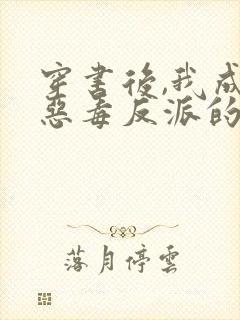 穿書後,我成
惡毒反派的
落月停雲